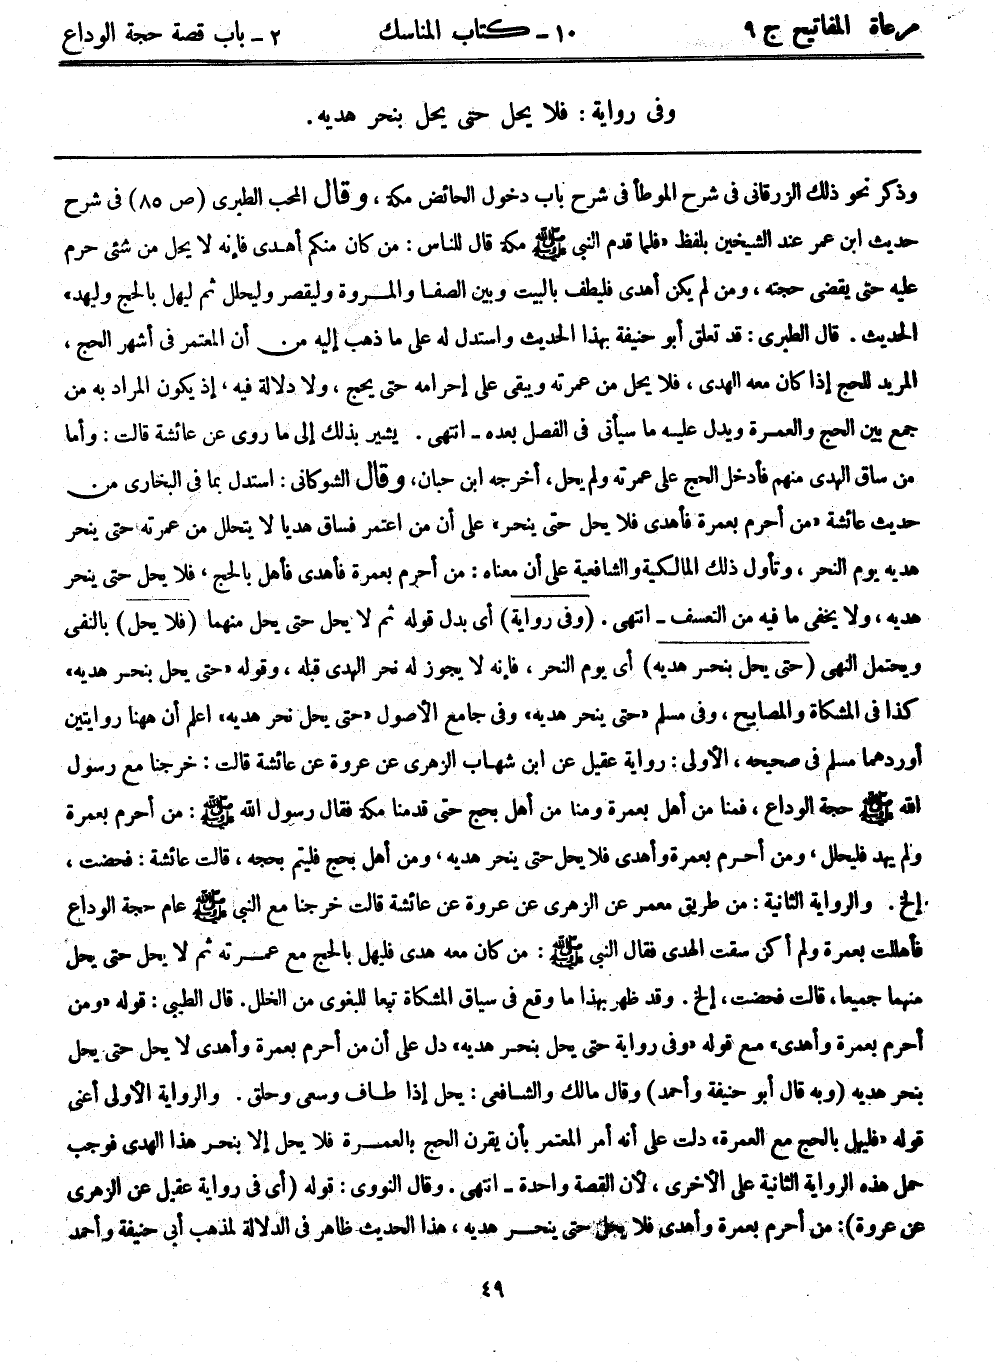 مرعاة المفاتيح ج ٩
١٠ - كتاب المناسك
٢ - باب قصة حجة الوداع
وفى رواية : فلا يحل حتى يحل بنحر هديه .
وذكر نحو ذلك الزرقانى فى شرح الموطأ فى شرح باب دخول الحائض مكة ، وقال المحب الطبرى (ص ٨٥) فى شرح
حديث ابن عمر عند الشيخين بلفظ «فلما قدم النبى ﷺ مكة قال للناس : من كان منكم أهدى فإنه لا يحل من شئى حرم
عليه حتى يقضى حجته ، ومن لم يكن أهدى فليطف بالبيت وبين الصفا والمروة وليقصر وليحلل ثم ليهل بالحج وليهد»
الحديث . قال الطبرى : قد تعلق أبو حنيفة بهذا الحديث واستدل له على ما ذهب إليه من أن المعتمر فى أشهر الحج ،
المريد للحج إذا كان معه الهدى ، فلا يحل من عمرته ويبقى على إحرامه حتى يحج ، ولا دلالة فيه ، إذ يكون المراد به من
جمع بين الحج والعمرة ويدل عليه ما سيأتى فى الفصل بعده - انتهى . يشير بذلك إلى ما روى عن عائشة قالت : وأما
من ساق الهدى منهم فأدخل الحج على عمرته ولم يحل ، أخرجه ابن حبان، وقال الشوكانى : استدل بما فى البخارى من
حديث عائشة «من أحرم بعمرة فأهدى فلا يحل حتى ينحر» على أن من اعتمر فساق هديا لا يتحلل من عمرته حتى ينحر
هديه يوم النحر ، وتأول ذلك المالكية والشافعية على أن معناه : من أحرم بعمرة فأهدى فأهل بالحج ، فلا يحل حتى ينحر
هديه ، ولا يخفى ما فيه من التعسف - انتهى . (وفى رواية) أى بدل قوله ثم لا يحل حتى يحل منهما (فلا يحل) بالنفى
ويحتمل النهى (حتى يحل بنحر هديه) أى يوم النحر ، فإنه لا يجوز له نحر الهدى قبله ، وقوله «حتى يحل بنحر هديه»
كذا فى المشكاة والمصابيح ، وفى مسلم «حتى ينحر هديه» وفى جامع الأصول «حتى يحل نحر هديه» اعلم أن ههنا روايتين
أوردهما مسلم فى صحيحه ، الأولى : رواية عقيل عن ابن شهاب الزهرى عن عروة عن عائشة قالت : خرجنا مع رسول
الله ﷺ حجة الوداع ، فمنا من أهل بعمرة ومنا من أهل بحج حتى قدمنا مكة فقال رسول الله ﷺ : من أحرم بعمرة
ولم يهد فليحلل ، ومن أحرم بعمرة وأهدى فلا يحل حتى ينحر هديه ، ومن أهل بحج فليتم بحجه ، قالت عائشة : فحضت ،
إلخ . والرواية الثانية : من طريق معمر عن الزهرى عن عروة عن عائشة قالت خرجنا مع النبى ﷺ عام حجة الوداع
فأهللت بعمرة ولم أكن سقت الهدى فقال النبى ﷺ : من كان معه هدى فليهل بالحج مع عمرته ثم لا يحل حتى يحل
منهما جميعا ، قالت فحضت ، إلخ . وقد ظهر بهذا ما وقع فى سياق المشكاة تبعا للبغوى من الخلل. قال الطيبى : قوله «ومن
أحرم بعمرة وأهدى» مع قوله «وفى رواية حتى يحل بنحر هديه» دل على أن من أحرم بعمرة وأهدى لا يحل حتى يحل
بنحر هديه (وبه قال أبو حنيفة وأحمد) وقال مالك والشافعى : يحل إذا طاف وسعى وحلق . والرواية الأولى أعنى
قوله «فليهل بالحج مع العمرة» دلت على أنه أمر المعتمر بأن يقرن الحج بالعمرة فلا يحل إلا بنحر هذا الهدى فوجب
حمل هذه الرواية الثانية على الأخرى ، لأن القصة واحدة - انتهى . وقال النووى : قوله (أى فى رواية عقيل عن الزهرى
عن عروة): من أحرم بعمرة وأهدى فلا يحل حتى ينحر هديه ، هذا الحديث ظاهر فى الدلالة لمذهب أبى حنيفة وأحمد
٤٩